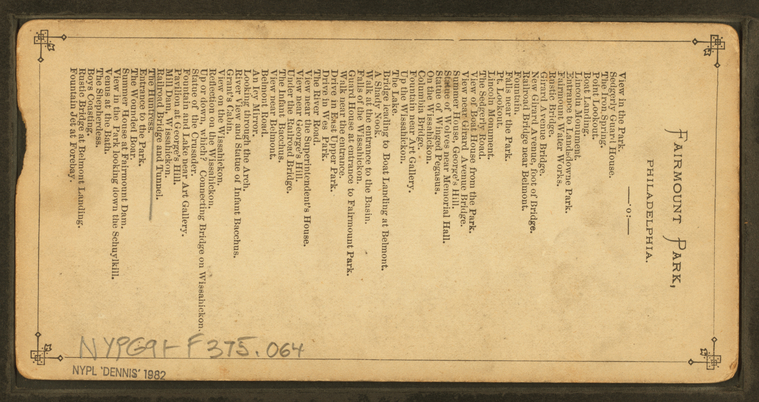 FAIRMOUNT PARK,
PHILADELPHIA.
—:o:—
View in the Park.
Sedgerly Guard House.
The Lounger.
Point Lookout.
Boat Landing.
Lincoln Monument.
Entrance to Landsdowne Park.
Fairmount Water Works.
Rustic Bridge.
Girard Avenue Bridge.
New Girard Avenue, foot of Bridge.
Railroad Bridge near Belmont.
Fountain.
Falls near the Park.
Pt. Lookout.
Lincoln Monument.
The Sedgerly Road.
View of Boat House from the Park.
View near Girard Avenue Bridge.
Summer House, George's Hill.
Statue of Wolves near Memorial Hall.
Statue of Winged Pegasus.
On the Wissahickon.
Columbia Bridge.
Fountain near Art Gallery.
Up the Wissahickon.
The Lake.
Bridge leading to Boat Landing at Belmont.
A Shady Nook.
Walk and entrance to the Basin.
Falls of the Wissahickon.
Guard House at entrance to Fairmount Park.
Walk near the entrance.
Drive in East Upper Park.
Drive in West Park.
The River Road.
View near the Superintendent's House.
View near George's Hill.
Under the Railroad Bridge.
The Infant Bacchus.
View near Belmont.
Belmont Road.
An Ivy Mirror.
Looking through the Arch.
River View and Statue of Infant Bacchus.
Grant's Cabin.
View on the Wissahickon.
Reflections on the Wissahickon.
Up or down, which? Connecting Bridge on Wissahickon.
Statue of the Crusader.
Fountain and Lake near Art Gallery.
Pavilion at George's Hill.
Mill on Wissahickon.
Railroad Bridge and Tunnel.
The Huntress.
Entrance to the Park.
The Wounded Boar.
Summer House at Fairmount Dam.
View in the Park looking down the Schuylkill.
Venus at the Bath.
The Shepherdess.
Boys Coasting.
Rustic Bridge at Belmont Landing.
Fountain and Forebay.
NYPG91-F375.064
NYPL 'DENNIS' 1982